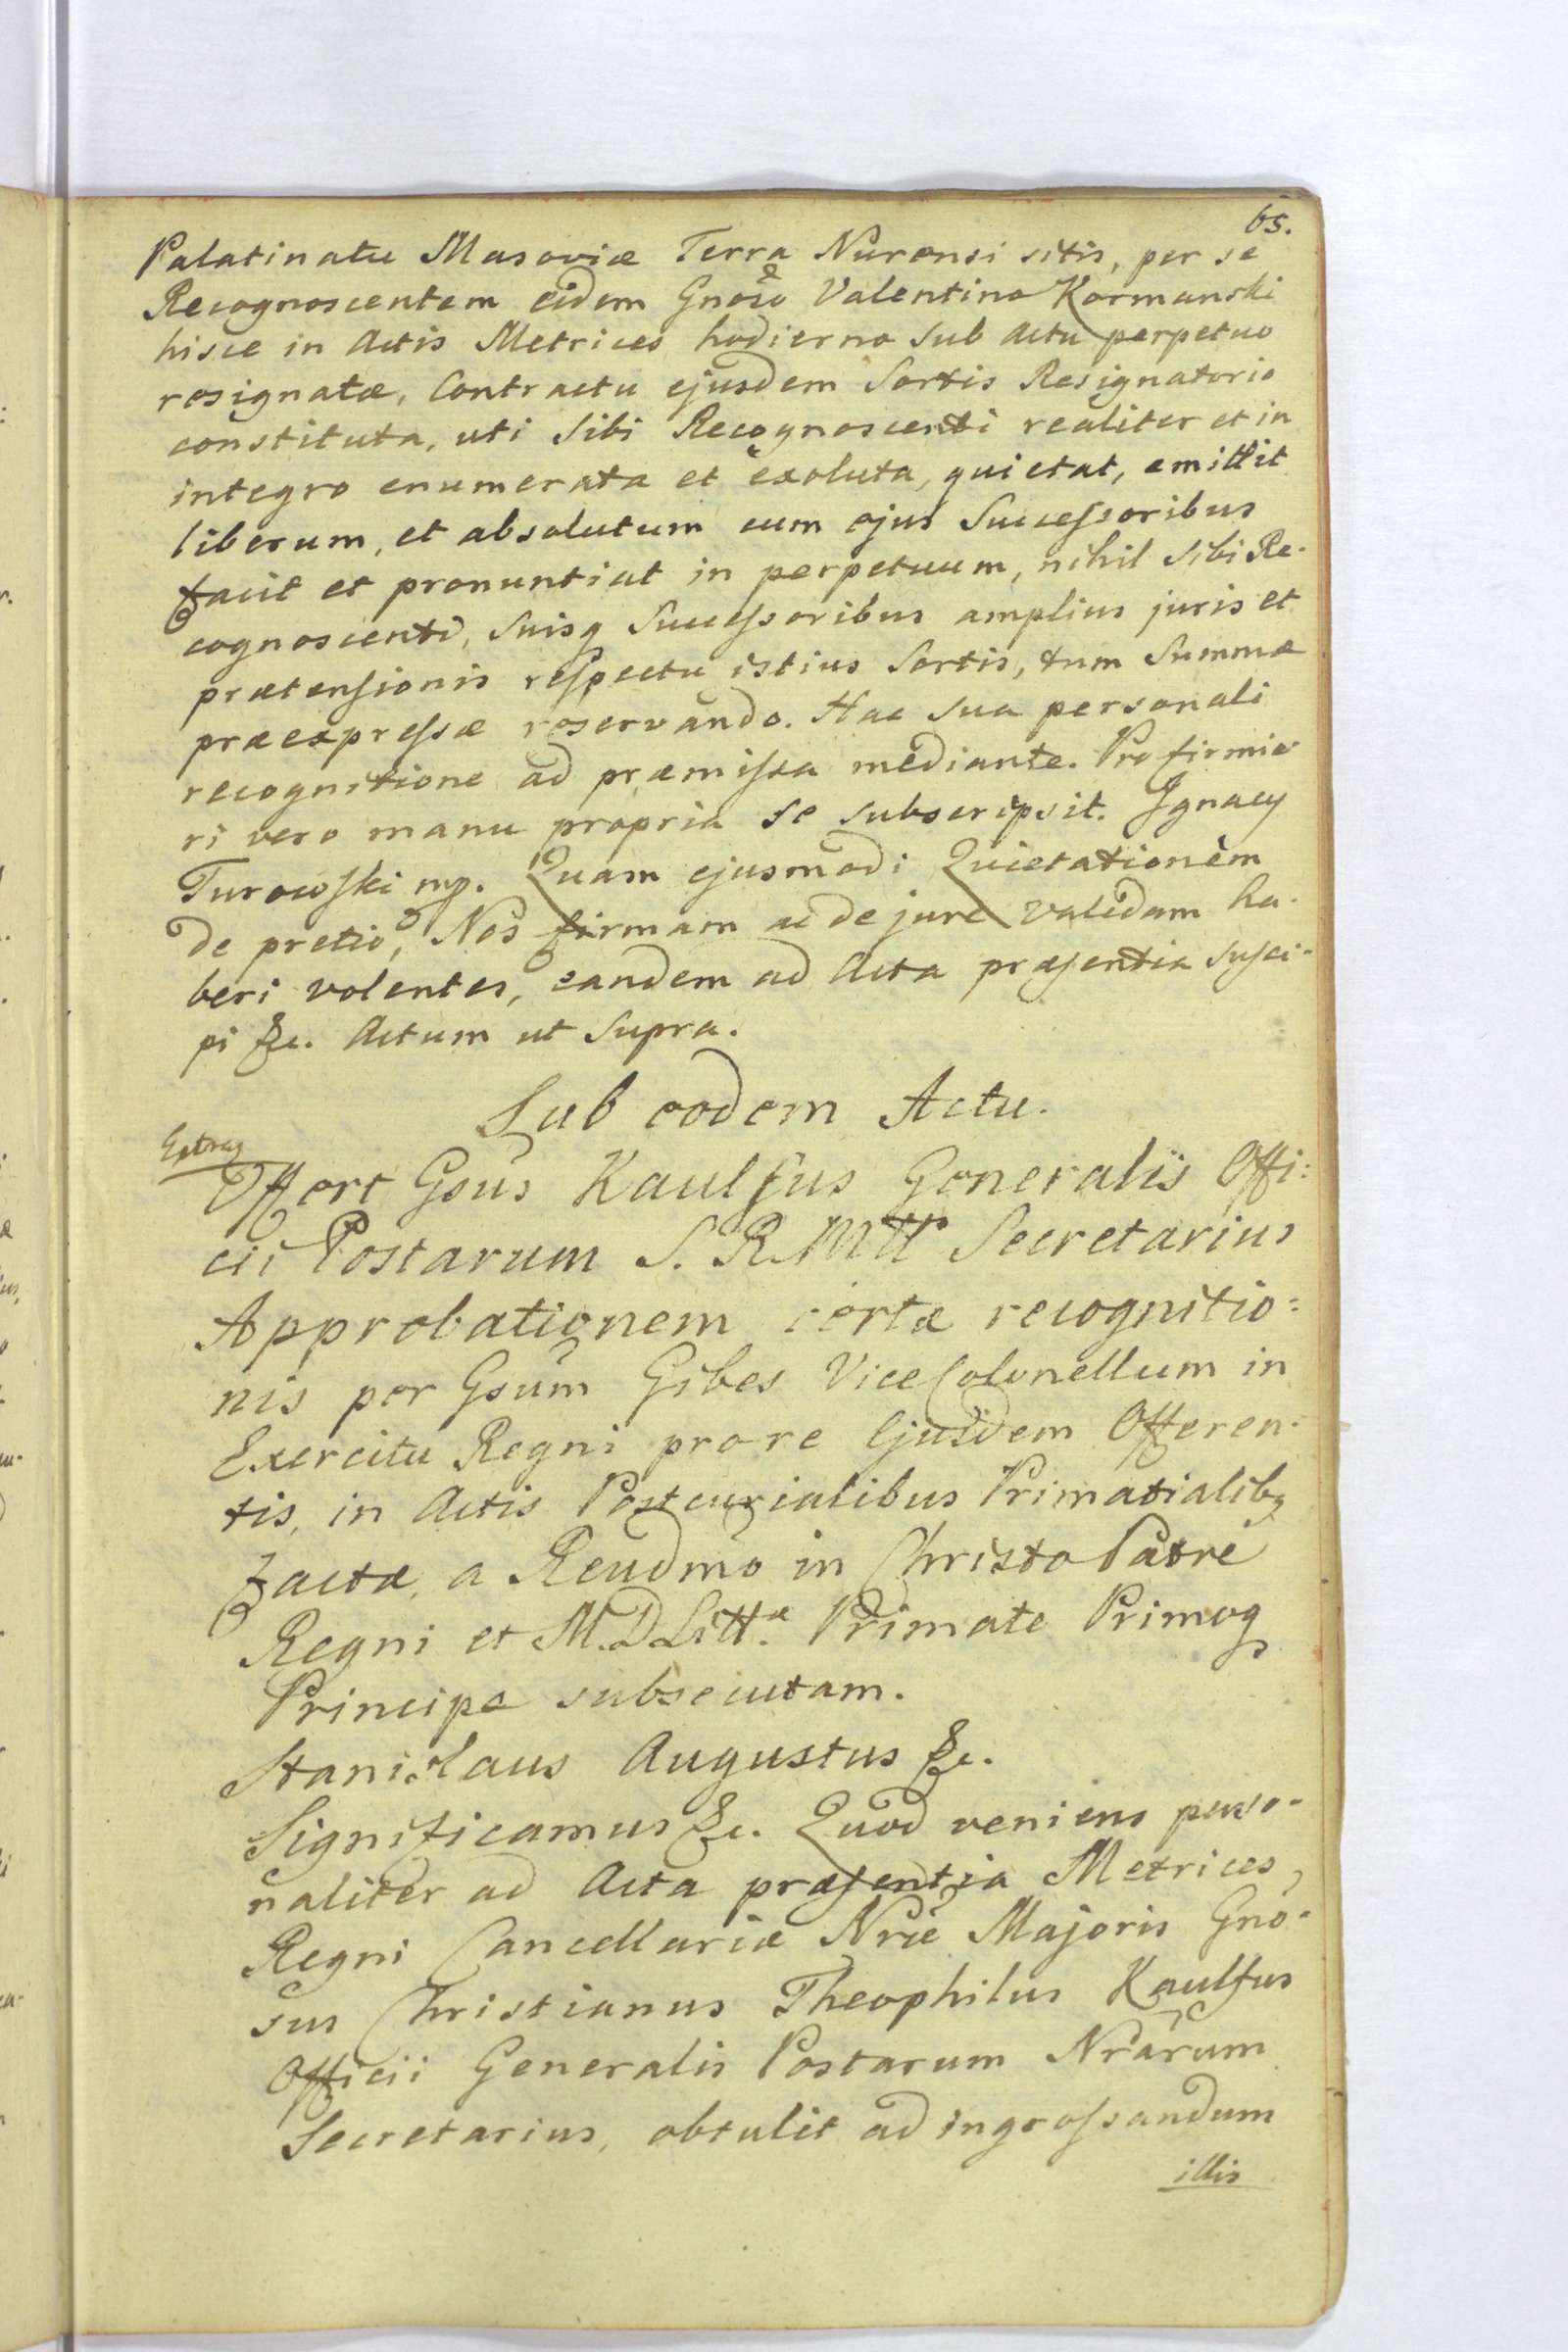 65.
Palatinatu Masoviæ Terra Nurensi sitis, per se
Recognoscentem eidem Gnoso Valentino Kormanski
hisce in Actis Metrices hodierno sub Actu perpetuo
resignatæ, Contractu ejusdem Sortis Resignatorio
constituta, uti sibi Recognoscenti realiter et in
integro enumerata et exoluta, quietat, emittit
liberum, et absolutum cum ejus Successoribus
facit et pronuntiat in perpetuum, nihil sibi Re-
cognoscenti, suisq Successoribus amplius juris et
prætensionis respectu istius Sortis, tum Summæ
præexpressæ reservando. Hac sua personali
recognitione ad præmissa mediante. Pro firmio
ri vero manu propria se subscripsit. Ignacy
Turowski mp. Quam ejusmodi Quietationem
de pretio, Nos firmam ac de jure validam ha-
beri volentes, eandem ad Acta præsentia susci-
pi &c. Actum ut supra.
Sub eodem Actu.
Extrag
Offert Gsus Kaulfus Generalis Offi:
cii Postarum S. R. Mttis Secretarius
Approbationem certæ recognitio:
nis per Gsum Gibes ViceColonellum in
Exercitu Regni pro re Ejusdem Offeren-
tis, in Actis Postcurialibus Primatialibq
factæ, a Reudmo in Christo Patre
Regni et M.D.Littæ Primate Primoq
Principe subsecutam.
Stanislaus Augustus &c.
Significamus &c. Quod veniens perso-
naliter ad Acta præsentia Metrices
Regni Cancellariæ Nræ Majoris Gno-
sus Christianus Theophilus Kaulfus
Officii Generalis Postarum Nrarum
Secretarius, obtulit ad ingrossandum
illis